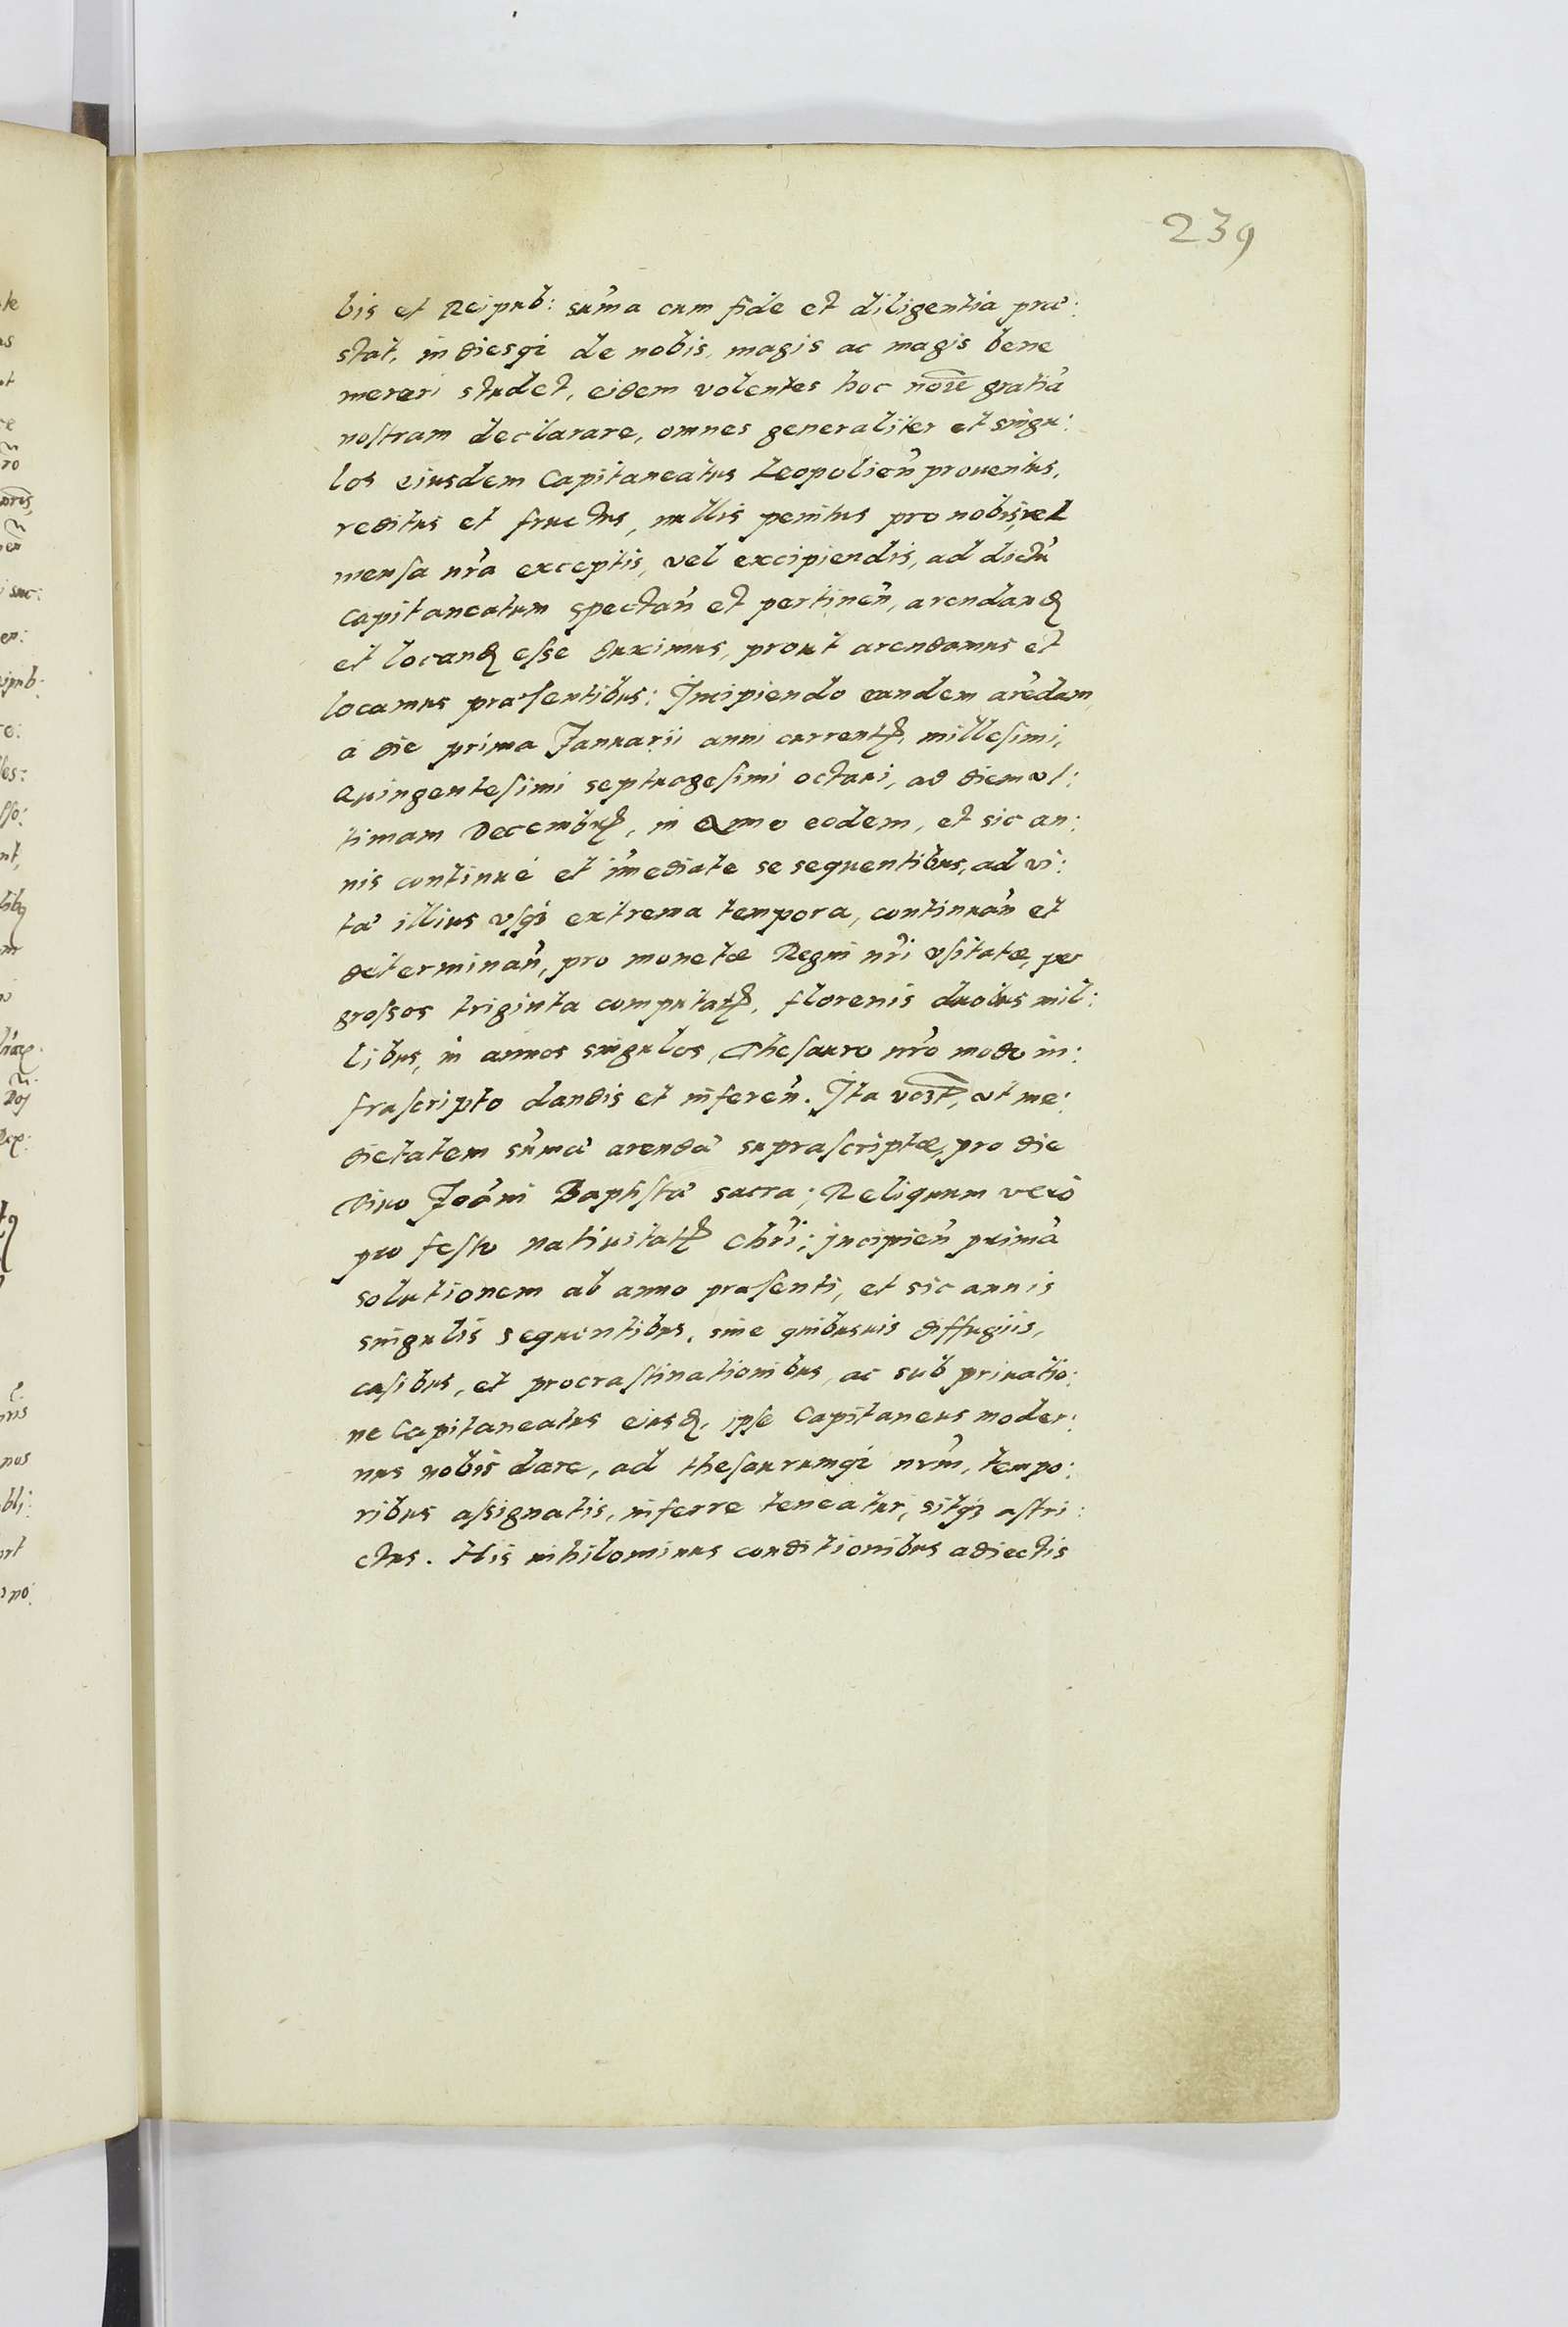 239
bis et Reipub: sum̃a cum fide et diligentia præ:
stat, in diesq3 de nobis, magis ac magis bene
mereri studet, eidem volentes hoc noĩe gratiã
nostram declarare, omnes generaliter et singu:
los eiusdem Capitaneatus Leopolieñ prouentus,
reditus et fructus, nullis penitus pro nobis, vel
mensa nr̃a exceptis, vel excipiendis, ad dictũ
Capitaneatum spectañ et pertineñ, arendand
et locand esse duximus, prout arendamus et
locamus præsentibus: Incipiendo eandem arẽdam,
à die prima Januarii anni currentis, millesimi,
Quingentesimi septuagesimi octaui, ad diem vl:
timam Decembris, in anno eodem, et sic an:
nis continué et im̃ediate se sequentibus, ad vi:
tæ illius vsq3 extrema tempora, continuañ et
determinañ, pro monetæ Regni nr̃i vsitatæ, per
grossos triginta computatis, florenis duobus mil:
libus, in annos singulos, Thesauro nr̃o modo in:
frascripto dandis et infereñ. Ita ut me:
dietatem sum̃æ arendæ suprascriptæ, pro die
Diuo Joãni Baptistæ sacra; Reliquum verò
pro festo natiuitatis Chr̃i; incipieñ primã
solutionem ab anno præsenti, et sic annis
singulis sequentibus, sine quibusuis diffugiis,
casibus, et procrastinationibus, ac sub priuatio:
ne Capitaneatus eiusd, ipse Capitaneus moder:
nus nobis dare, ad thesaurumq3 nrm̃, tempo:
ribus assignatis, inferre teneatur, sitq3 astri:
ctus. His nihilominus conditionibus adiectis